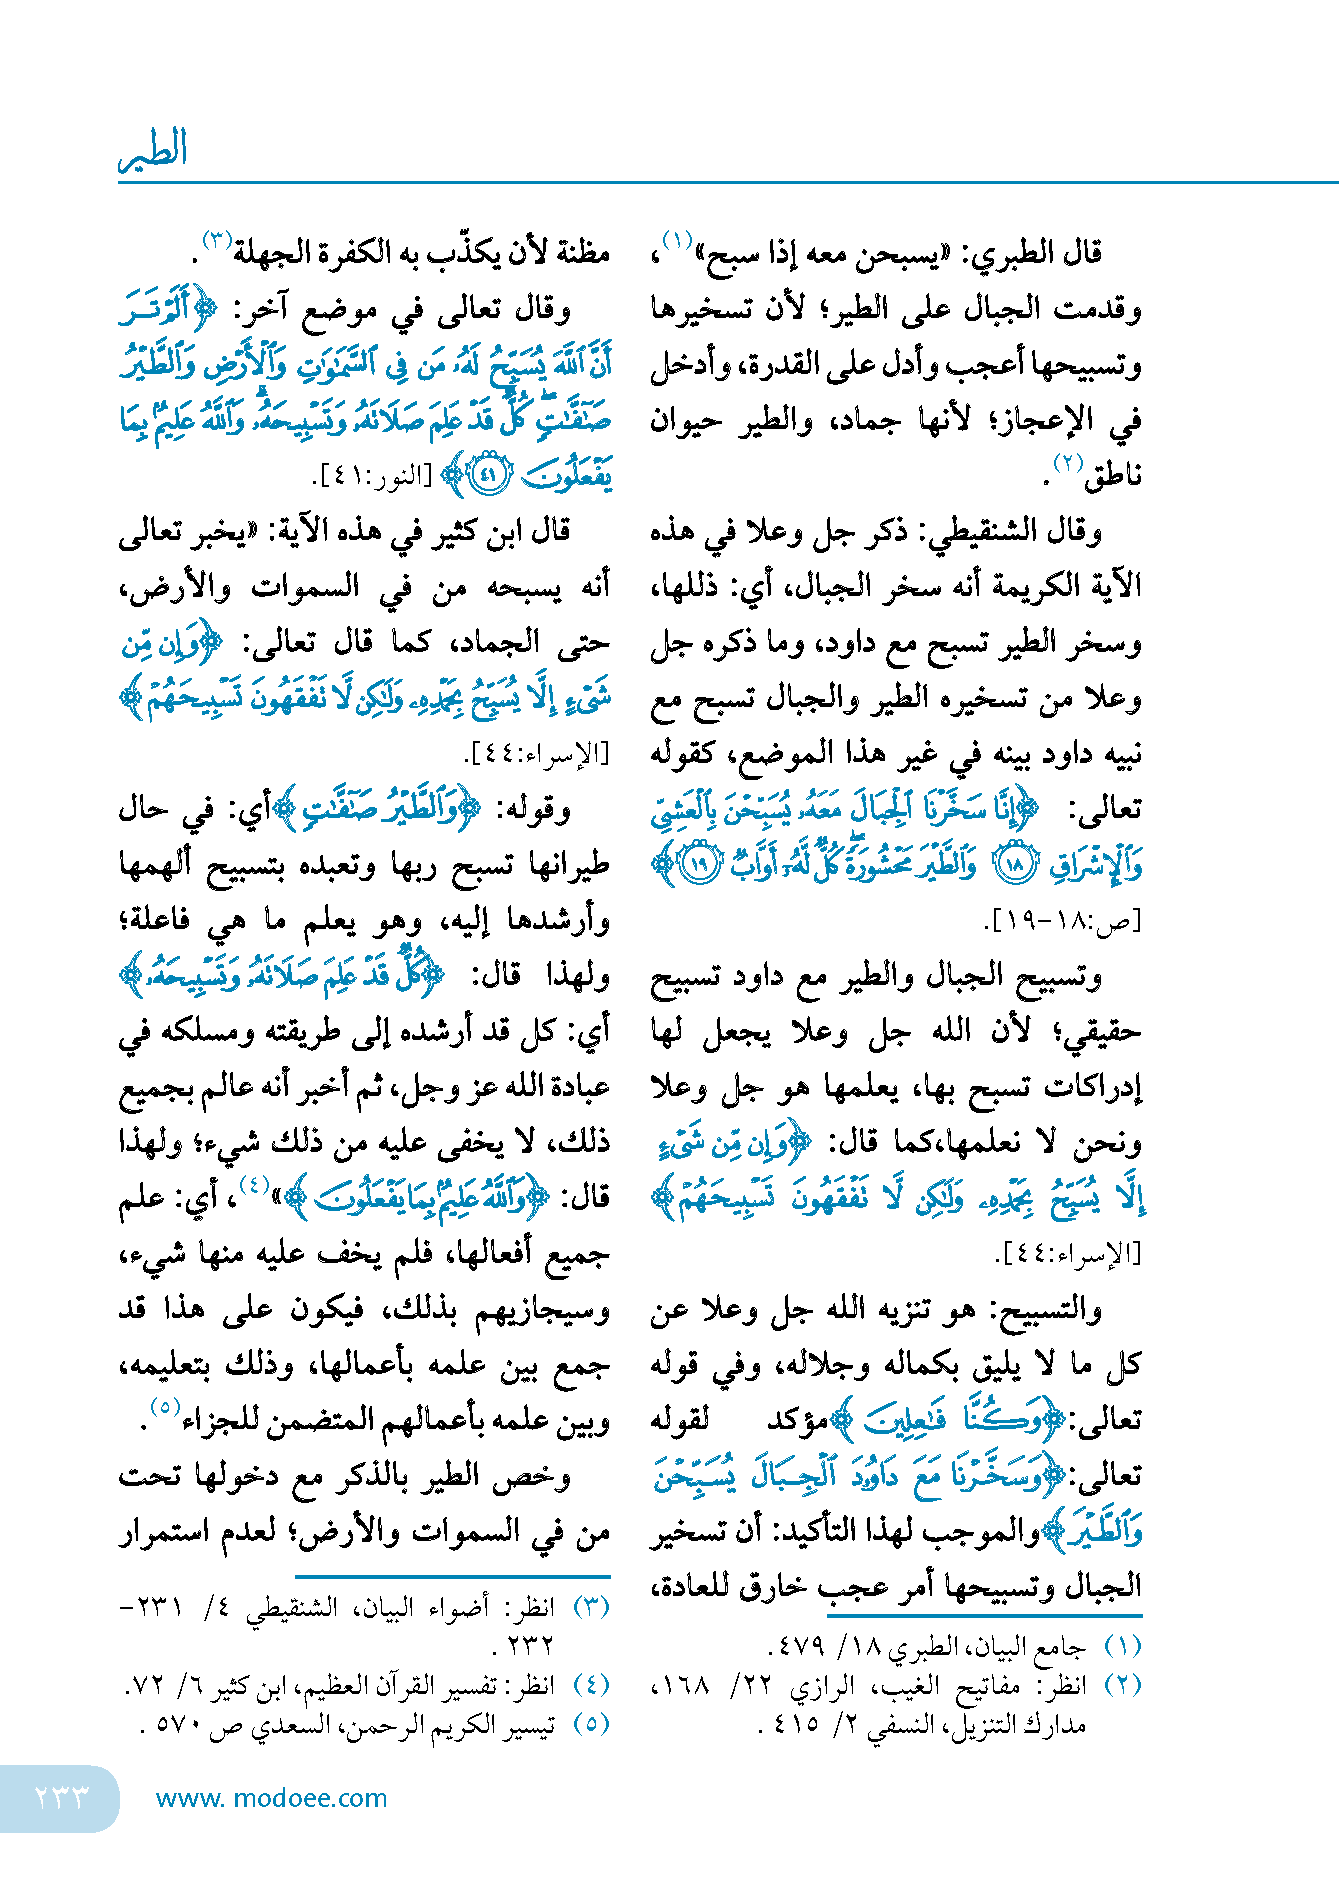 الطير
قال الطبري: «يسبحن معه إذا سبح»(١)،
وقدمت الجبال على الطير؛ لأن تسخيرها
وتسبيحها أعجب وأدل على القدرة، وأدخل
في الإعجاز؛ لأنها جماد، والطير حيوان
ناطق(٢).
وقال الشنقيطي: ذكر جل وعلا في هذه
الآية الكريمة أنه سخر الجبال، أي: ذللها،
وسخر الطير تسبح مع داود، وما ذكره جل
وعلا من تسخيره الطير والجبال تسبح مع
نبيه داود بينه في غير هذا الموضع، كقوله
تعالى: ﴿إِنَّا سَخَّرْنَا ٱلْجِبَالَ مَعَهُۥ يُسَبِّحْنَ بِٱلْعَشِيِّ
وَٱلْإِشْرَاقِ ١٨ وَٱلطَّيْرَ مَحْشُورَةً ۖ كُلٌّ لَّهُۥٓ أَوَّابٌ ١٩﴾
[ص:١٨-١٩].
وتسبيح الجبال والطير مع داود تسبيح
حقيقي؛ لأن الله جل وعلا يجعل لها
إدراكات تسبح بها، يعلمها هو جل وعلا
ونحن لا نعلمها،كما قال: ﴿وَإِن مِّن شَىْءٍ
إِلَّا يُسَبِّحُ بِحَمْدِهِۦ وَلَـٰكِن لَّا تَفْقَهُونَ تَسْبِيحَهُمْ﴾
[الإسراء:٤٤].
والتسبيح: هو تنزيه الله جل وعلا عن
كل ما لا يليق بكماله وجلاله، وفي قوله
تعالى:﴿وَكُنَّا فَـٰعِلِينَ﴾مؤكد لقوله
تعالى:﴿وَسَخَّرْنَا مَعَ دَاوُۥدَ ٱلْجِبَالَ يُسَبِّحْنَ
وَٱلطَّيْرَ﴾والموجب لهذا التأكيد: أن تسخير
الجبال وتسبيحها أمر عجب خارق للعادة،
(١) جامع البيان، الطبري ١٨/ ٤٧٩.
(٢) انظر: مفاتيح الغيب، الرازي ٢٢/ ١٦٨،
مدارك التنزيل، النسفي ٢/ ٤١٥ .
مظنة لأن يكذّب به الكفرة الجهلة(٣).
وقال تعالى في موضع آخر: ﴿أَلَمْ تَرَ
أَنَّ ٱللَّهَ يُسَبِّحُ لَهُۥ مَن فِى ٱلسَّمَـٰوَٰتِ وَٱلْأَرْضِ وَٱلطَّيْرُ
صَـٰٓفَّـٰتٍ ۖ كُلٌّ قَدْ عَلِمَ صَلَاتَهُۥ وَتَسْبِيحَهُۥ ۗ وَٱللَّهُ عَلِيمٌۢ بِمَا
يَفْعَلُونَ ٤١﴾ [النور:٤١].
قال ابن كثير في هذه الآية: «يخبر تعالى
أنه يسبحه من في السموات والأرض،
حتى الجماد، كما قال تعالى: ﴿وَإِن مِّن
شَىْءٍ إِلَّا يُسَبِّحُ بِحَمْدِهِۦ وَلَـٰكِن لَّا تَفْقَهُونَ تَسْبِيحَهُمْ﴾
[الإسراء:٤٤].
وقوله: ﴿وَٱلطَّيْرُ صَـٰٓفَّـٰتٍ﴾أي: في حال
طيرانها تسبح ربها وتعبده بتسبيح ألهمها
وأرشدها إليه، وهو يعلم ما هي فاعلة؛
ولهذا قال: ﴿كُلٌّ قَدْ عَلِمَ صَلَاتَهُۥ وَتَسْبِيحَهُۥ﴾
أي: كل قد أرشده إلى طريقته ومسلكه في
عبادة الله عز وجل، ثم أخبر أنه عالم بجميع
ذلك، لا يخفى عليه من ذلك شيء؛ ولهذا
قال: ﴿وَٱللَّهُ عَلِيمٌۢ بِمَا يَفْعَلُونَ﴾»(٤)، أي: علم
جميع أفعالها، فلم يخف عليه منها شيء،
وسيجازيهم بذلك، فيكون على هذا قد
جمع بين علمه بأعمالها، وذلك بتعليمه،
وبين علمه بأعمالهم المتضمن للجزاء(٥).
وخص الطير بالذكر مع دخولها تحت
من في السموات والأرض؛ لعدم استمرار
(٣) انظر: أضواء البيان، الشنقيطي ٤/ ٢٣١-
٢٣٢ .
(٤) انظر: تفسير القرآن العظيم، ابن كثير ٦/ ٧٢.
(٥) تيسير الكريم الرحمن، السعدي ص ٥٧٠ .
www. modoee.com
٢٣٣